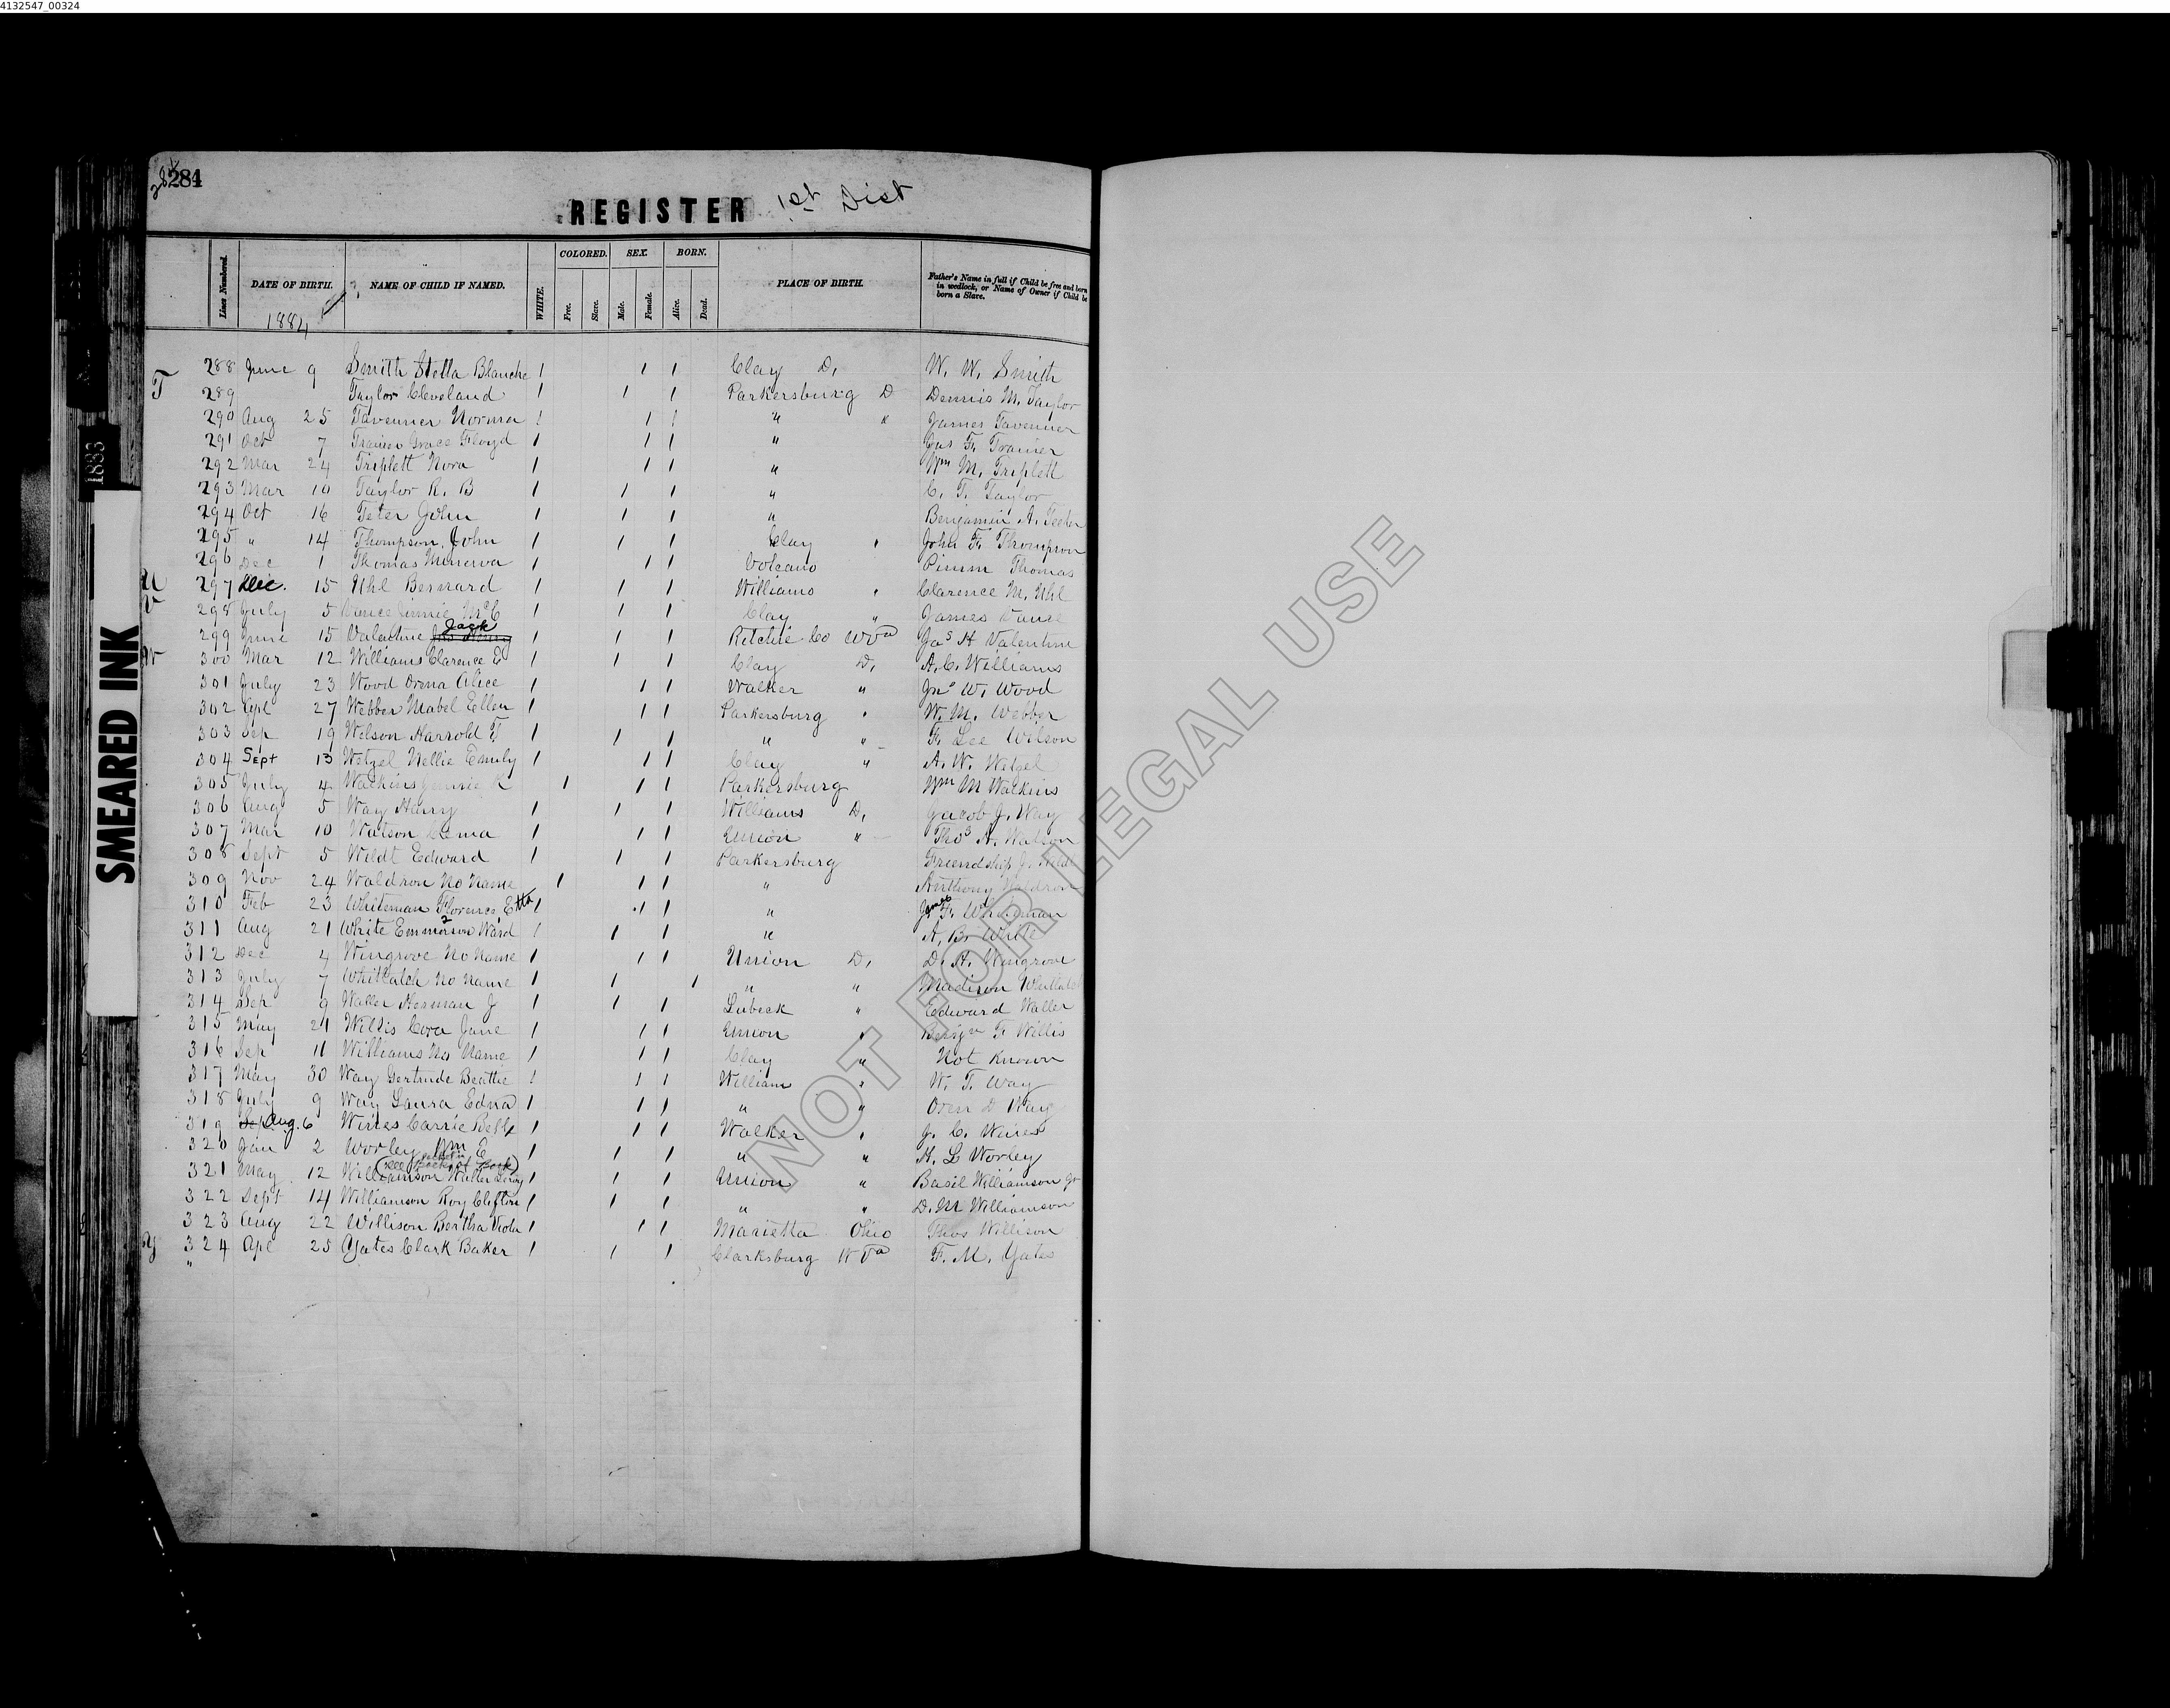 4132547_00324
284
284
REGISTER 1st Dist
Lines Numbered. DATE OF BIRTH. NAME OF CHILD IF NAMED. WHITE. COLORED. Free. Slave. SEX. Male. Female. BORN. Alive. Dead. PLACE OF BIRTH. Father's Name in full if Child be free and born in wedlock, or Name of Owner if Child be born a Slave.
1884
288 June 9 Smith Stella Blanche 1 1 1 Clay D, W. W. Smith
T 289 Taylor Cleveland 1 1 1 Parkersburg D Dennis M. Taylor
290 Aug 25 Tavenner Norma 1 1 1 " " James Tavenner
291 Oct 7 Trainer Grace Floyd 1 1 1 " Gus F. Trainer
292 Mar 24 Triplett Nora 1 1 1 " Wm M. Triplett
293 Mar 10 Taylor R. B 1 1 1 " C. T. Taylor
294 Oct 16 Teter John 1 1 1 " Benjamin A. Teeter
295 " 14 Thompson, John 1 1 1 Clay " John F. Thompson
296 Dec 1 Thomas Minerva 1 1 1 Volcano Pimm Thomas
U 297 Dec. 15 Uhl Bernard 1 1 1 Williams " Clarence M. Uhl
V 298 July 5 Vance Jimmie McC 1 1 1 Clay " James Vance
299 June 15 Valentine Jack 1 1 1 Ritchie Co W Va Jas H Valentine
W 300 Mar 12 Williams Clarence E 1 1 1 Clay D, A. C. Williams
301 July 23 Wood Orena Alice 1 1 1 Walker " Jno W. Wood
302 Apl 27 Webber Mabel Ellen 1 1 1 Parkersburg " W. M. Webber
303 Sep 19 Welson Harrold F, 1 1 1 " " F. Lee Wilson
304 Sept 13 Wetzel Nellie Emily 1 1 1 Clay " A. W. Wetzel
305 July 4 Watkins R 1 1 1 Parkersburg Wm M Watkins
306 Aug 5 Way Harry 1 1 1 Williams D, Jacob J. Way
307 Mar 10 Watson 1 1 1 Union " Thos A. Watson
308 Sept 5 Wildt Edward 1 1 1 Parkersburg Freendship J. Wildt
309 Nov 24 Waldron No Name 1 1 1 " Anthony Waldron
310 Feb 23 Whiteman Florence Etta 1 1 1 " James F. Whiteman
311 Aug 21 White Emmerson Ward 1 1 1 " A. B. White
312 Dec 4 Wingrove No Name 1 1 1 Union D, D. A. Wingrove
313 July 7 Whitlatch No Name 1 1 1 " " Madison Whitlatch
314 Sep 9 Waller Herman J 1 1 1 Lubeck " Edward Waller
315 May 21 Willis Cora Jane 1 1 1 Union " Benjn F. Willis
316 Sep 11 Williams No Name 1 1 1 Clay " Not Known
317 May 30 Way Gertrude Beattie 1 1 1 William " W. T. Way
318 July 9 Way Laura Edna 1 1 1 " " Oren D Way
319 Sep Aug. 6 Wires Carrie Belle 1 1 1 Walker " J. C. Wires
320 Jan 2 Worley Wm E 1 1 1 " " A. L Worley
321 May 12 Williamson Walter Leroy 1 1 1 Union " Basil Williamson Jr
322 Sept 14 Williamson Roy Clifton 1 1 1 " " D. M Williamson
323 Aug 22 Willison Bertha Viola 1 1 1 Marietta Ohio Thos Willison
Y 324 Apl 25 Yates Clark Baker 1 1 1 Clarksburg W Va F. M. Yates
"
1883
SMEARED INK
NOT FOR LEGAL USE